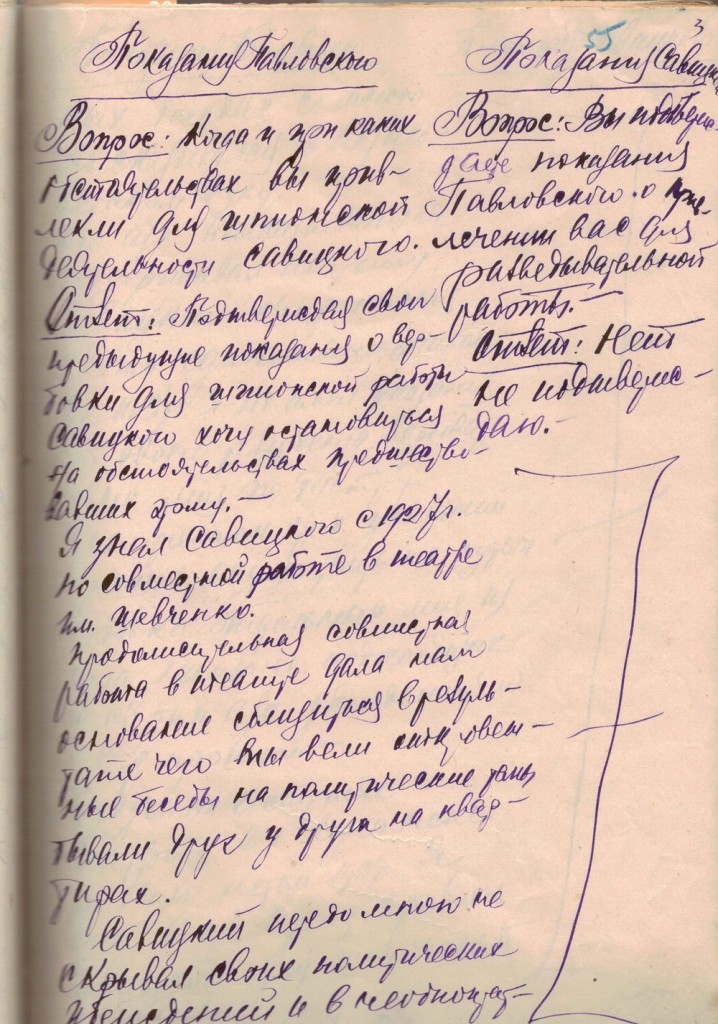 3
55
Показания Павловского
Вопрос: Когда и при каких
обстоятельствах вы прив-
лекли для шпионской
деятельности Савицкого.
Ответ: Подтверждая свои
предыдущие показания о вер-
бовки для шпионской работы
Савицкого хочу остановиться
на обстоятельствах предшество-
вавших этому.—
Я знал Савицкого с 1927г.
по совместной работе в театре
им. Шевченко.
Продолжительная совместная
работа в театре дала нам
основание сблизиться в резуль-
тате чего мы вели откровен-
ные беседы на политические темы
бывали друг у друга на квар-
тирах.
Савицкий передо мною не
скрывал своих политических
убеждений и в неоднократ-
Показания Савицк
Вопрос: Вы подтверж-
даете показания
Павловского о прив-
лечении вас для
разведывательной
работы.—
Ответ: Нет
не подтверж-
даю.—